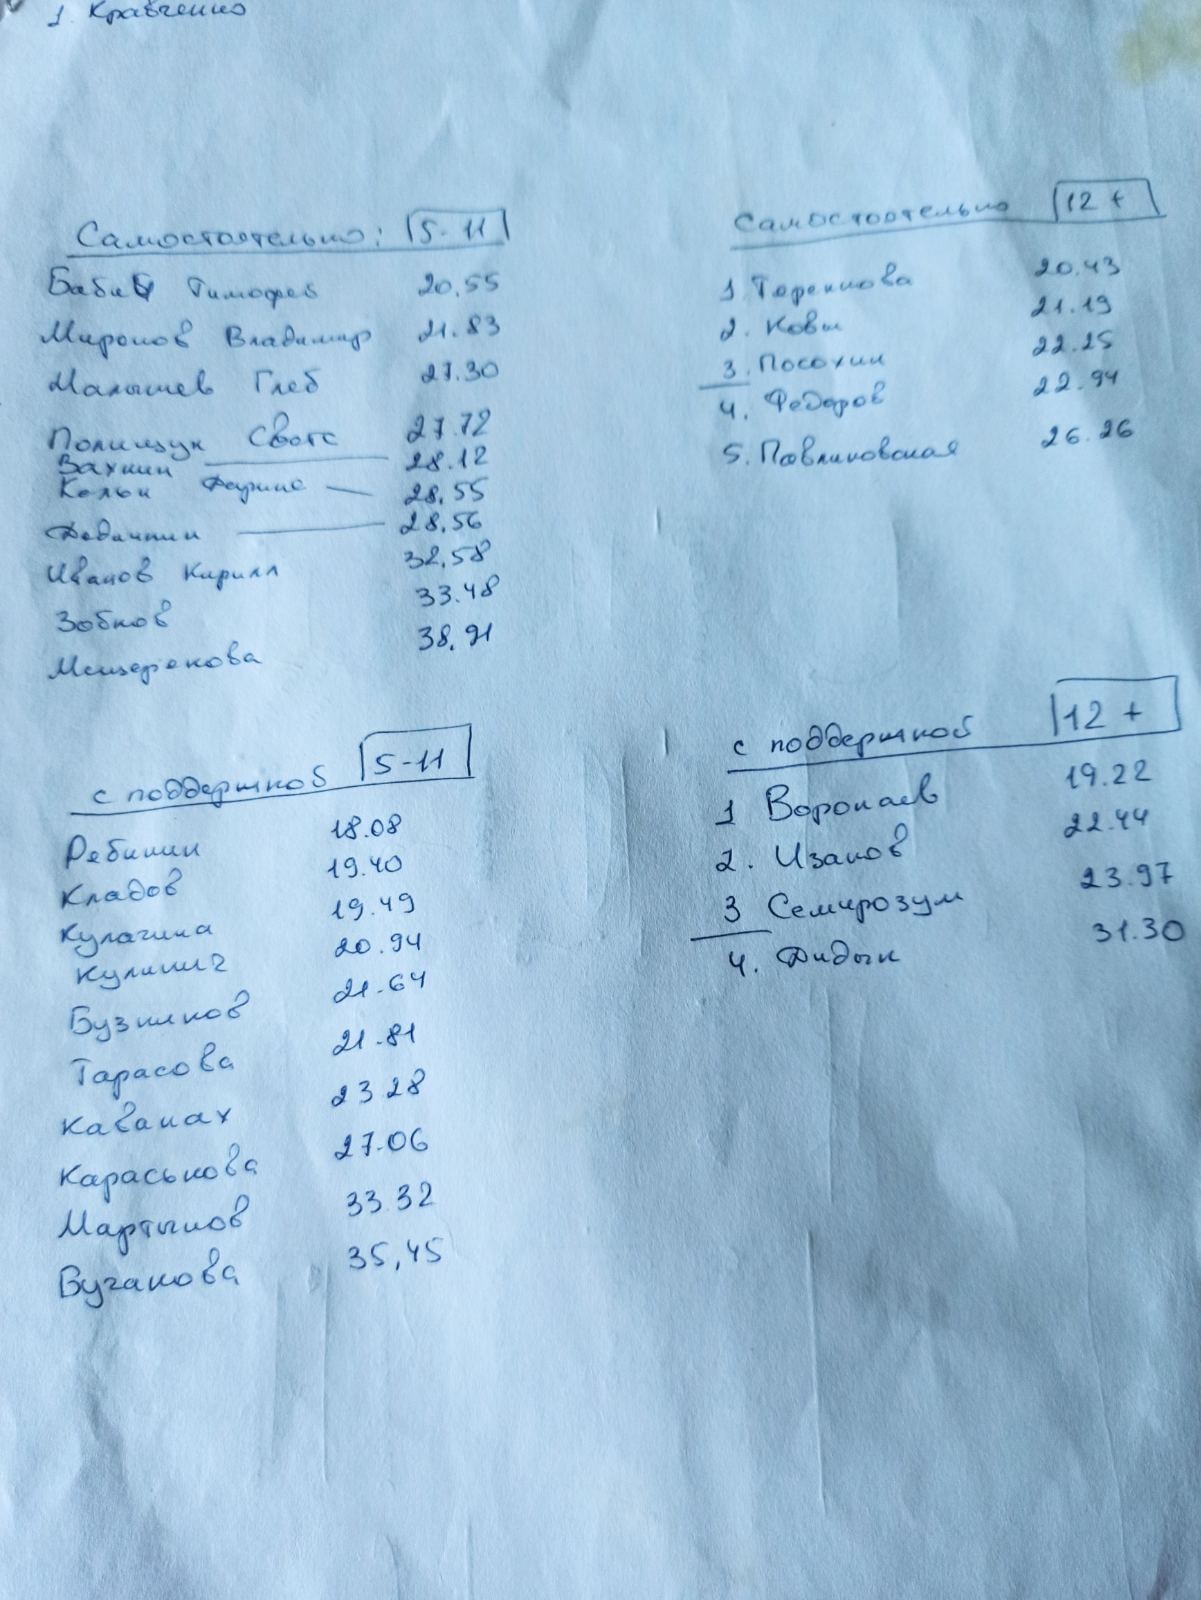 1. Кравченко
Самостоятельно: 5-11
Бабий Тимофей 20,55
Миронов Владимир 21.83
Малышев Глеб 27.30
Полищук Свят 27.72
Вахнин 28.12
Кельн 28,55
28,56
Иванов Кирилл 32,58
Зобнов 33.48
Мещерякова 38,91
Самостоятельно 12+
1. 20,43
2. Ковы 21.19
3. Посохин 22.25
4. Федоров 22.94
5. Павлиновская 26.26
с поддержкой 5-11
Ребинин 18.08
Кладов 19.40
Кулагина 19.49
Кулинич 20.94
Бузинов 21.64
Тарасова 21.81
Каванах 23 28
Караськова 27.06
Мартынов 33.32
Бучанова 35,45
с поддержкой 12+
1 Воронаев 19.22
2. Изанов 22.44
3 Семирозум 23.97
4. Дидык 31.30